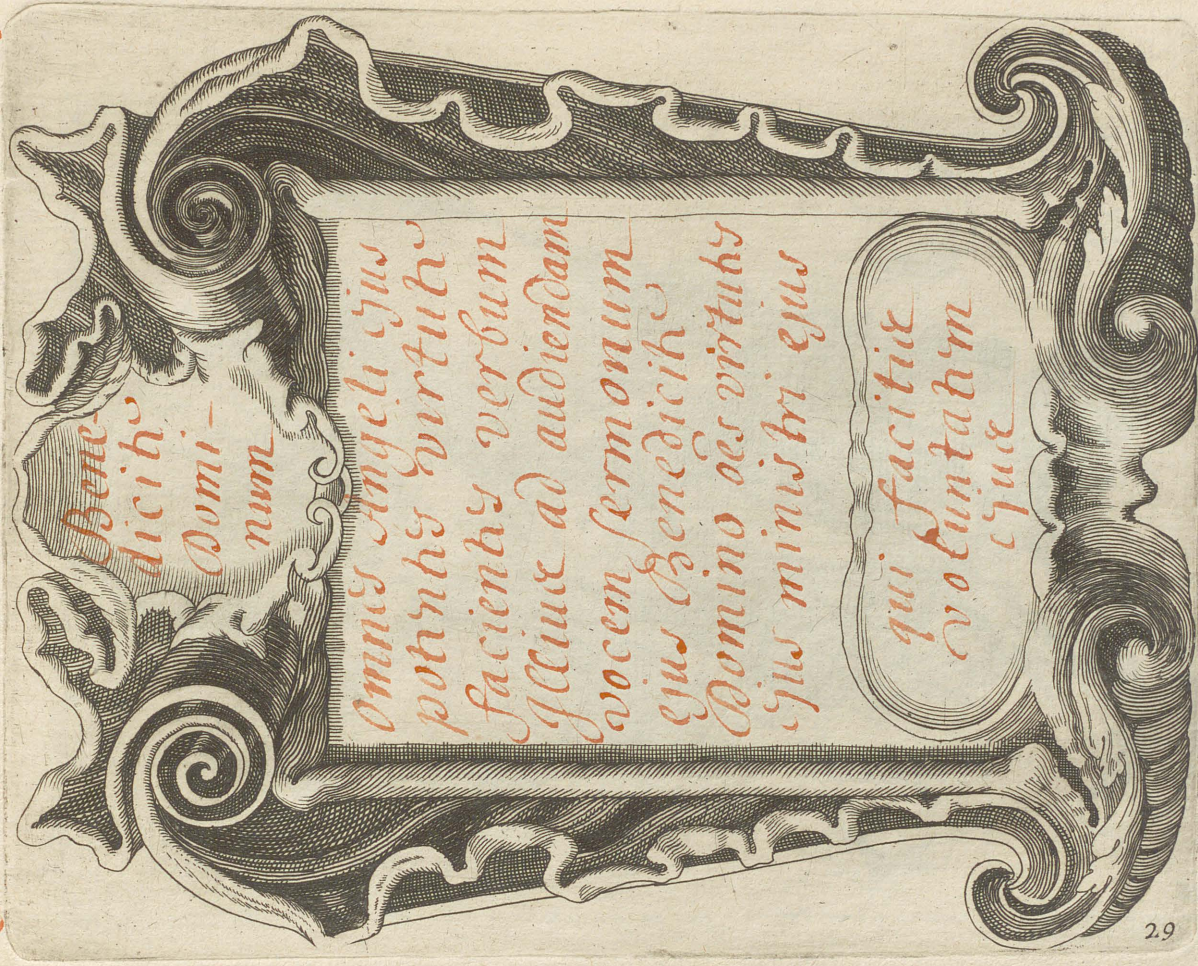 Bene-
dicite
Domi-
num
omnes Angeli ejus
potentes virtute
facientes verbum
Illius ad audiendam
vocem sermonum
ejus Benedicite
Domino oēs virtutes
ejus ministri ejus
qui facitis
voluntatem
ejus
29